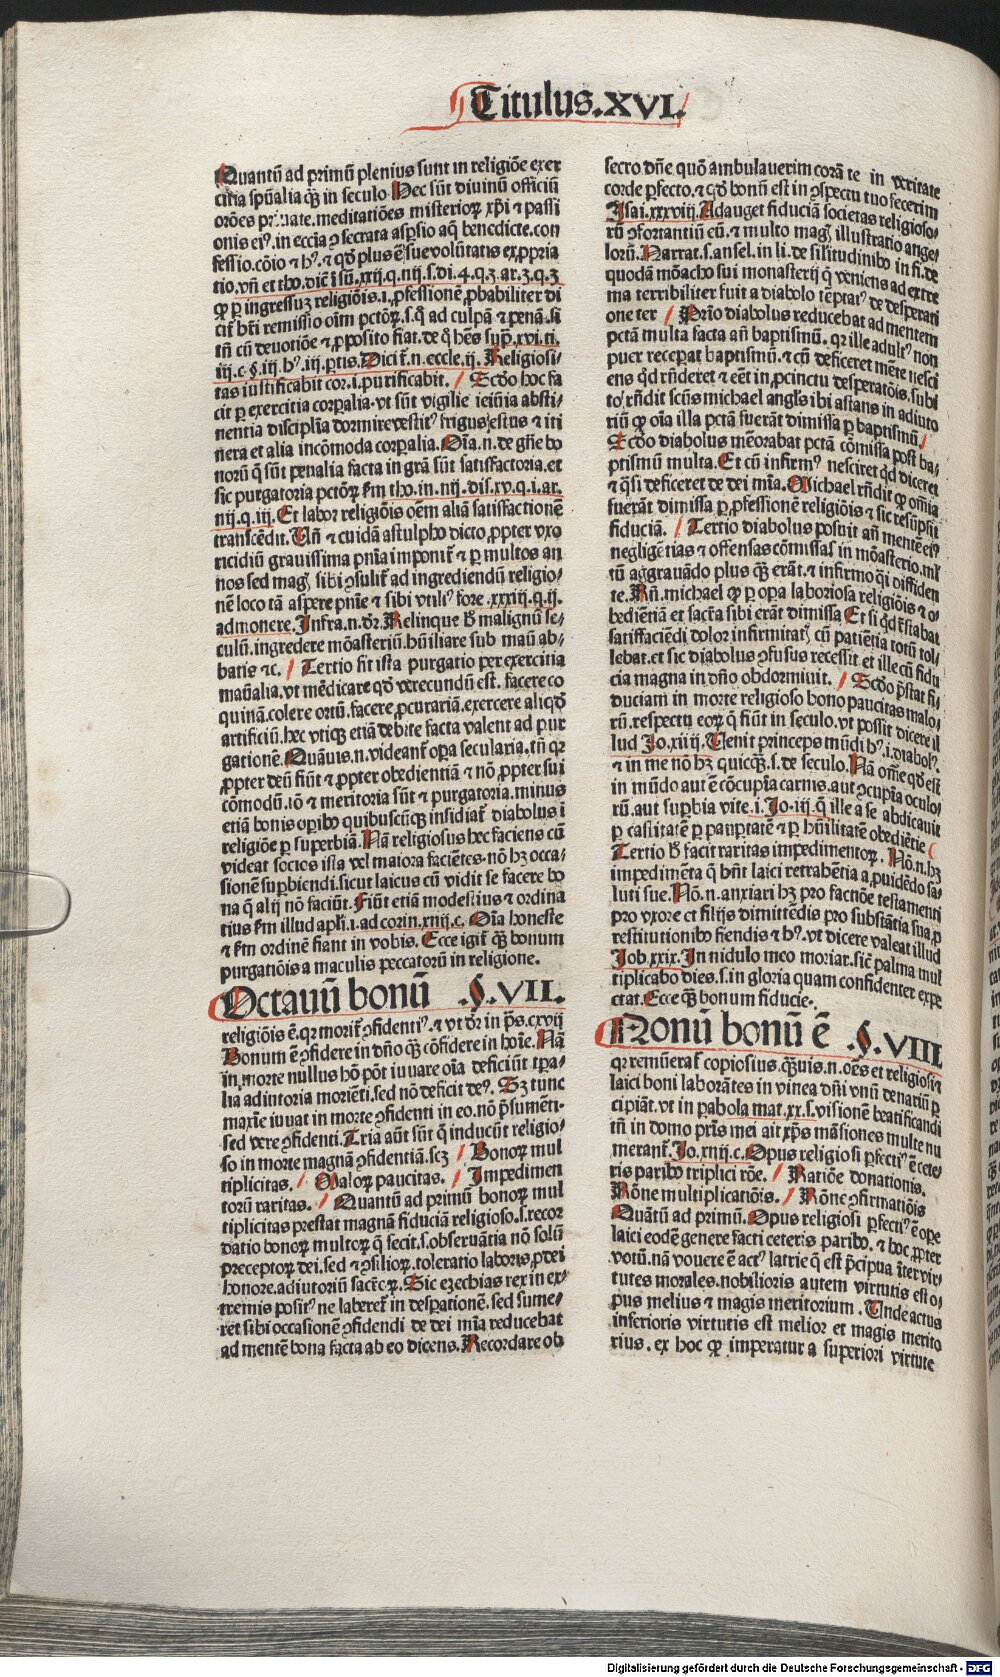 Titulus.XVI.
Quantũ ad primũ plenius sunt in religiõe exer
citia spũalia q̃ȝ in seculo. Hec sũt diuinũ officiũ
orões priuate.meditatiões misterioꝝ xp̃i ⁊ passi
onis eiꝰ.in eccia ꝯsecrata asp̃sio aq̃ benedicte.con
fessio.cõio ⁊ hꝰ.⁊ qd̃ plus ẽ sue volũtatis ex ꝓpria
tio.vñ et tho.dic̃ ĩ sũ.xxij.q.nij.s.di.4.q.3.ar.3.q.3
ꝙ ꝑ ingressuȝ religiõis.i.ꝓfessionẽ ꝓbabiliter di
cit̃ hr̃i remissio oĩm pctõꝝ.s.q̃ ad culpã ⁊ penã.si
tñ cũ deuotiõe ⁊ ꝓposito fiat.de q̃ hẽs sup̃.xvi.ti.
iij.c.§.iij.hꝰ.iij.ꝑtis.Dicit̃.n.eccle.ij.Religiosi⸗
tas iustificabit cor.i.purificabit. / Scd̃o hoc fa
cit ꝑ exercitia corꝑalia.vt sũt vigilie ieiũia absti⸗
nentia disciplĩa dormire vestitꝰ frigus estus ⁊ iti
nera et alia incõmoda corꝑalia.Oĩa.n.de gñe bo
norũ q̃ sũt penalia facta in grã sũt satisfactoria.et
sic purgatoria pctõꝝ fm̃ tho.in.nij.dis.xv.q.i.ar.
nij.q.iij.Et labor religiõis oẽm aliã satisfactionẽ
transcẽdit.Vñ ⁊ cuidã astulpho dicto.ꝓpter vxo
ricidiũ grauissima pnĩa imponit̃ ⁊ ꝑ multos an
nos sed mag̃ sibi ꝯsulit̃ ad ingrediendũ religio⸗
nẽ loco tã aspere pnĩe ⁊ sibi vtiliꝰ fore.xxxiij.q.ij.
admonere.Infra.n.dr̃.Relinque h̃ malignũ se⸗
culũ.ingredere mõasteriũ.hũiliare sub manũ ab⸗
batis ⁊c. / Tertio fit ista purgatio per exercitia
manũalia.vt mẽdicare qd̃ verecundũ est.facere co
quinã.colere ortũ.facere ꝓcurariã.exercere aliqd̃
artificiũ.hec vtiqȝ etiã debite facta valent ad pur
gationẽ.Quãuis.n.videant̃ oꝑa secularia.tñ qꝛ
ꝓpter deũ fiũt ⁊ ꝓpter obedientiã ⁊ nõ ꝓpter sui
cõmodũ.iõ ⁊ meritoria sũt ⁊ purgatoria.minus
etiã bonis oꝑibꝰ quibuscũqȝ insidiat̃ diabolus ĩ
religiõe ꝑ superbiã.Nã religiosus hec faciens cũ
videat socios ista vel maiora faciẽtes.nõ hȝ occa⸗
sionẽ suꝑbiendi.sicut laicus cũ vidit se facere bo
na q̃ alij nõ faciũt.Fiũt etiã modestius ⁊ ordina
tius fm̃ illud apli.i.ad corin.xnij.c. Oĩa honeste
⁊ fm̃ ordinẽ fiant in vobis. Ecce igit̃ q̃ȝ bonum
purgatiõis a maculis peccatorũ in religione.
Octauũ bonũ .§.VII.
religiõis ẽ.qꝛ morit̃ ꝯfidentiꝰ.⁊ vt dr̃ in ps̃.cxvij
Bonum ẽ ꝯfidere in dño q̃ȝ cõfidere in hoĩe. Nã
in morte nullus hõ põt iuuare oĩa deficiũt tp̃a⸗
lia adiutoria moriẽti.sed nõ deficit deꝰ. Sȝ tunc
maxĩe iuuat in morte ꝯfidenti in eo.nõ p̃sumẽti⸗
sed vere ꝯfidenti.Tria aũt sũt q̃ inducũt religio⸗
so in morte magnã ꝯfidentiã.scȝ / Bonoꝝ mul
tiplicitas. / Maloꝝ paucitas. / Impedimen
torũ raritas. / Quantũ ad primũ bonoꝝ mul
tiplicitas prestat magnã fiduciã religioso.s.recor
datio bonoꝝ multoꝝ q̃ fecit.s.obseruãtia nõ solũ
preceptoꝝ dei.sed ⁊ ꝯsilioꝝ.toleratio laboris.ꝓ dei
honore.adiutoriũ sacr̃oꝝ.Sic ezechias rex in ex⸗
tremis positꝰ ne laberet̃ in desꝑationẽ.sed sume⸗
ret sibi occasionẽ ꝯfidendi de dei mĩa reducebat
ad mentẽ bona facta ab eo dicens.Recordare ob
secro dñe quõ ambulauerim corã te in veritate
corde ꝑfecto.⁊ qd̃ bonũ est in ꝯspectu tuo fecerim
Isai.xxxviij.Adauget fiduciã societas religioso⸗
rũ ꝯfortantiũ eũ.⁊ multo mag̃ illustratio ange⸗
lorũ.Narrat.s.ansel.in li.de silitudinibꝰ in fi.de
quodã mõacho sui monasterij q̃ veniens ad extre
ma terribiliter fuit a diabolo tẽptatꝰ de desperati
one ter / Prĩo diabolus reducebat ad mentem
pctã multa facta añ baptismũ.qꝛ ille adultꝰ non
puer receperat baptismũ.⁊ cũ deficeret mẽte nesci
ens qd̃ rñderet ⁊ eẽt in ꝓcinctu desperatõis.subi
to rñdit scũs michael angl̃s ibi astans in adiuto
riũ ꝙ oĩa illa pctã fuerãt dimissa ꝑ baptismũ. /
Scd̃o diabolus mẽorabat pctã cõmissa post ba⸗
ptismũ multa.Et cũ infirmꝰ nesciret qd̃ diceret
⁊ q̃si deficeret de dei mĩa.Michael rñdit ꝙ om̃ia
fuerãt dimissa ꝑ ꝓfessionẽ religiõis ⁊ sic resũpsit
fiduciã. / Tertio diabolus posuit añ mentẽ eiꝰ
negligẽtias ⁊ offensas cõmissas in mõasterio.ml̃
tũ aggrauãdo plus q̃ȝ erãt.⁊ infirmo q̃i diffiden
te.Rñ.michael ꝙ ꝑ oꝑa laboriosa religiõis ⁊ o⸗
bediẽtiã et sacr̃a sibi erãt dimissa Et si qd̃ r̃stabat
satisfaciẽdi dolor infirmitatꝭ cũ patiẽtia totũ tol⸗
lebat.et sic diabolus ꝯfusus recessit et ille cũ fidu
cia magna in dño obdormiuit. / Scd̃o p̃stat fi⸗
duciam in morte religioso bono paucitas malo⸗
rũ.respectu eoꝝ q̃ fiũt in seculo.vt possit dicere il
lud Jo.xiiij.Uenit princeps mũdi hꝰ.i.diabolꝰ.
⁊ in me nõ hȝ quicq̃ȝ.s.de seculo.Nã om̃e qd̃ est
in mũdo aut ẽ cõcupĩa carnis.aut ꝯcupĩa oculo⸗
rũ.aut suꝑbia vite.i.Jo.iij.q̃ ille a se abdicauit
ꝑ castitatẽ ꝑ pauptatẽ ⁊ ꝑ hũilitatẽ obediẽtie (
Tertio h̃ facit raritas impedimentoꝝ. Nõ.n.hȝ
impedimẽta q̃ hñt laici retrahẽtia a ꝓuidẽdo sa⸗
luti sue.Nõ.n.anxiari hȝ pro factiõe testamenti
pro vxore et filijs dimittẽdis pro substãtia sua.ꝓ
restitutionibꝰ fiendis ⁊ hꝰ.vt dicere valeat illud
Job.xxix.In nidulo meo moriar.sic̃ palma mul
tiplicabo dies.s.in gloria quam confidenter expe
ctat.Ecce q̃ȝ bonum fiducie.
Nonũ bonũ ẽ .§.VIII
qꝛ remũerat̃ copiosius.q̃ȝuis.n.oẽs et religiosi ⁊
laici boni laborãtes in vinea dñi vnũ denariũ ꝑ
cipiãt.vt in ꝑabola mat.xx.s.visionẽ beatificandi
tñ in domo pr̃is mei ait xp̃s mãsiones multe nu
merant̃.Jo.xnij.c.Opus religiosi ꝑfectiꝰ ẽ cete⸗
ris paribꝰ triplici rõe. / Ratiõe donationis.
Rõne multiplicatiõis. / Rõne ꝯfirmatiõis
Quãtũ ad primũ.Opus religiosi ꝑfectiꝰ ẽ oꝑe
laici eodẽ genere facti ceteris paribꝰ.⁊ hoc ꝓpter
votũ.nã vouere ẽ actꝰ latrie q̃ est p̃cipua ĩter vir⸗
tutes morales.nobilioris autem virtutis est o⸗
pus melius ⁊ magis meritorium.Unde actus
inferioris virtutis est melior et magis merito
rius.ex hoc ꝙ imperatur a superiori virtute
Digitalisierung gefördert durch die Deutsche Forschungsgemeinschaft - DFG